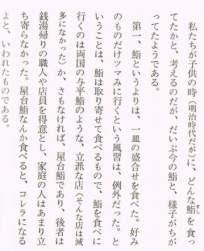 私たちが子供の時(明治時代だが)に、どんな鮨を食っ
てたかと、考えるのだが、だいぶ今の鮨と、様子がちが
ってたようである。
第一、鮨というよりは、一皿の盛合せを食べた。好み
のものだけツマみに行くという風習は、例外だった。と
いうことは、鮨は取り寄せて食べるもので、鮨を食べに
行くのは両国の与平鮨のような、立派な店(そんな店は減
多になかった)か、さもなければ、屋台鮨であり、後者は
銭湯帰りの職人や店員を得意とし、家庭の人はあまり立
ち寄らなかった。屋台鮨なんか食べると、コレラになる
よと、いわれたものである。